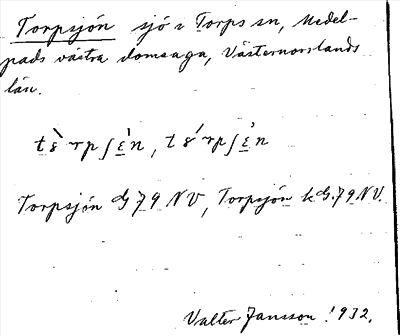 Torpsjön sjö i Torps sn, Medel-
pads västra domsaga, Västernorrlands
län.
Torpsjön G 79 NV, Torpsjön kG.79 NV.
Valter Jansson 1932.